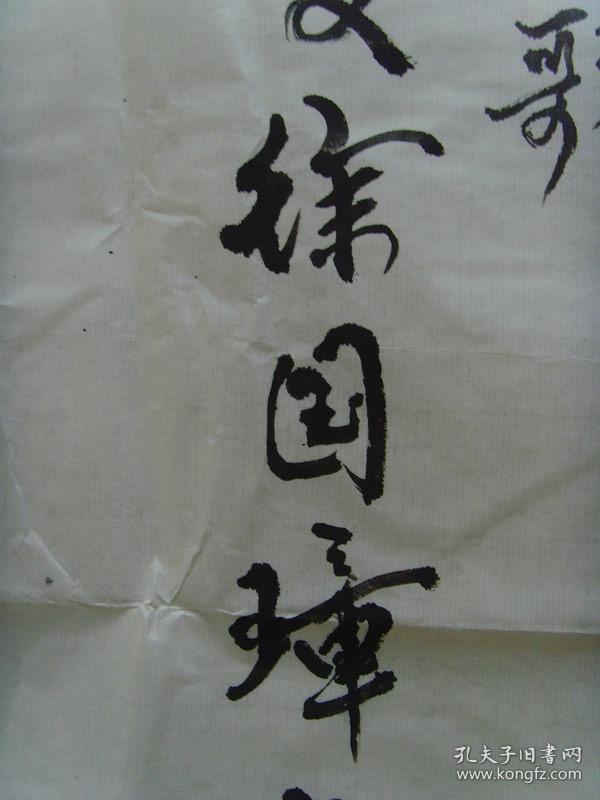 哥
徐国璋
孔夫子旧书网
www.kongfz.com